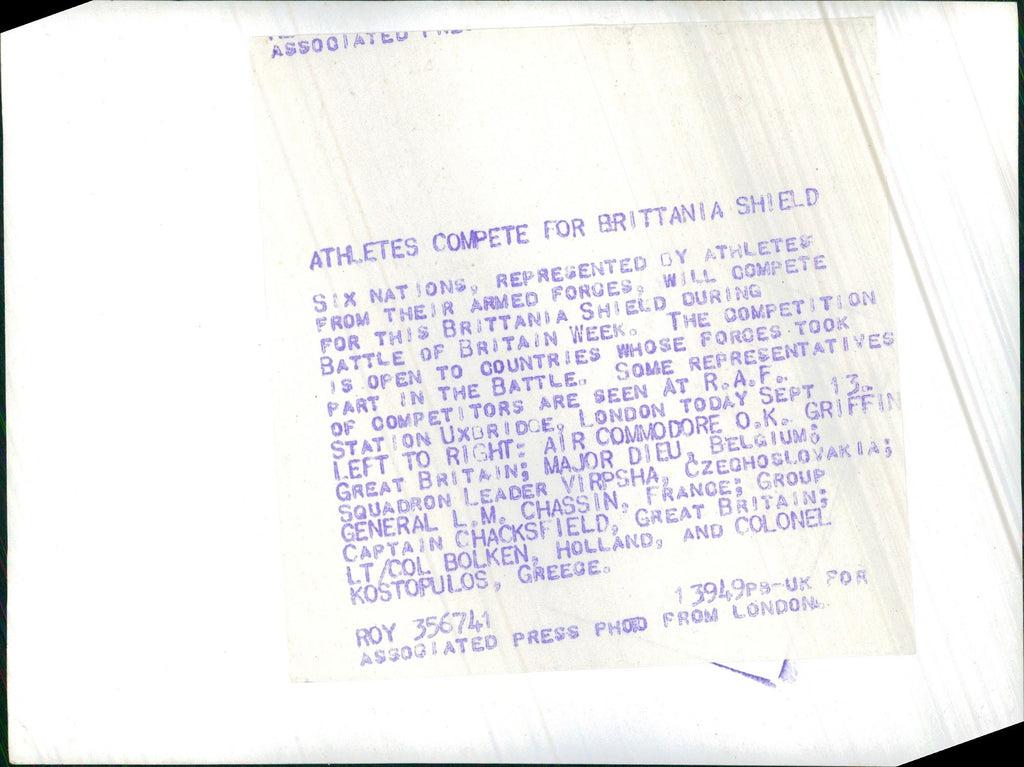 ASSOCIATED
ATHLETES COMPETE FOR BRITTANIA SHIELD
SIX NATIONS, REPRESENTED BY ATHLETES
FROM THEIR ARMED FORCES, WILL COMPETE
FOR THIS BRITTANIA SHIELD DURING
BATTLE OF BRITAIN WEEK. THE COMPETITION
IS OPEN TO COUNTRIES WHOSE FORCES TOOK
PART IN THE BATTLE. SOME REPRESENTATIVES
OF COMPETITORS ARE SEEN AT R.A.F.
STATION UXBRIDGE, LONDON TODAY SEPT 13.
LEFT TO RIGHT: AIR COMMODORE O.K. GRIFFIN
GREAT BRITAIN; MAJOR DIEU, BELGIUM;
SQUADRON LEADER VIRPSHA, CZECHOSLOVAKIA;
GENERAL L.M. CHASSIN, FRANCE; GROUP
CAPTAIN CHACKSFIELD, GREAT BRITAIN;
LT/COL BOLKEN, HOLLAND, AND COLONEL
KOSTOPULOS, GREECE.
ROY 356741 13949PB-UK FOR
ASSOCIATED PRESS PHOTO FROM LONDON.